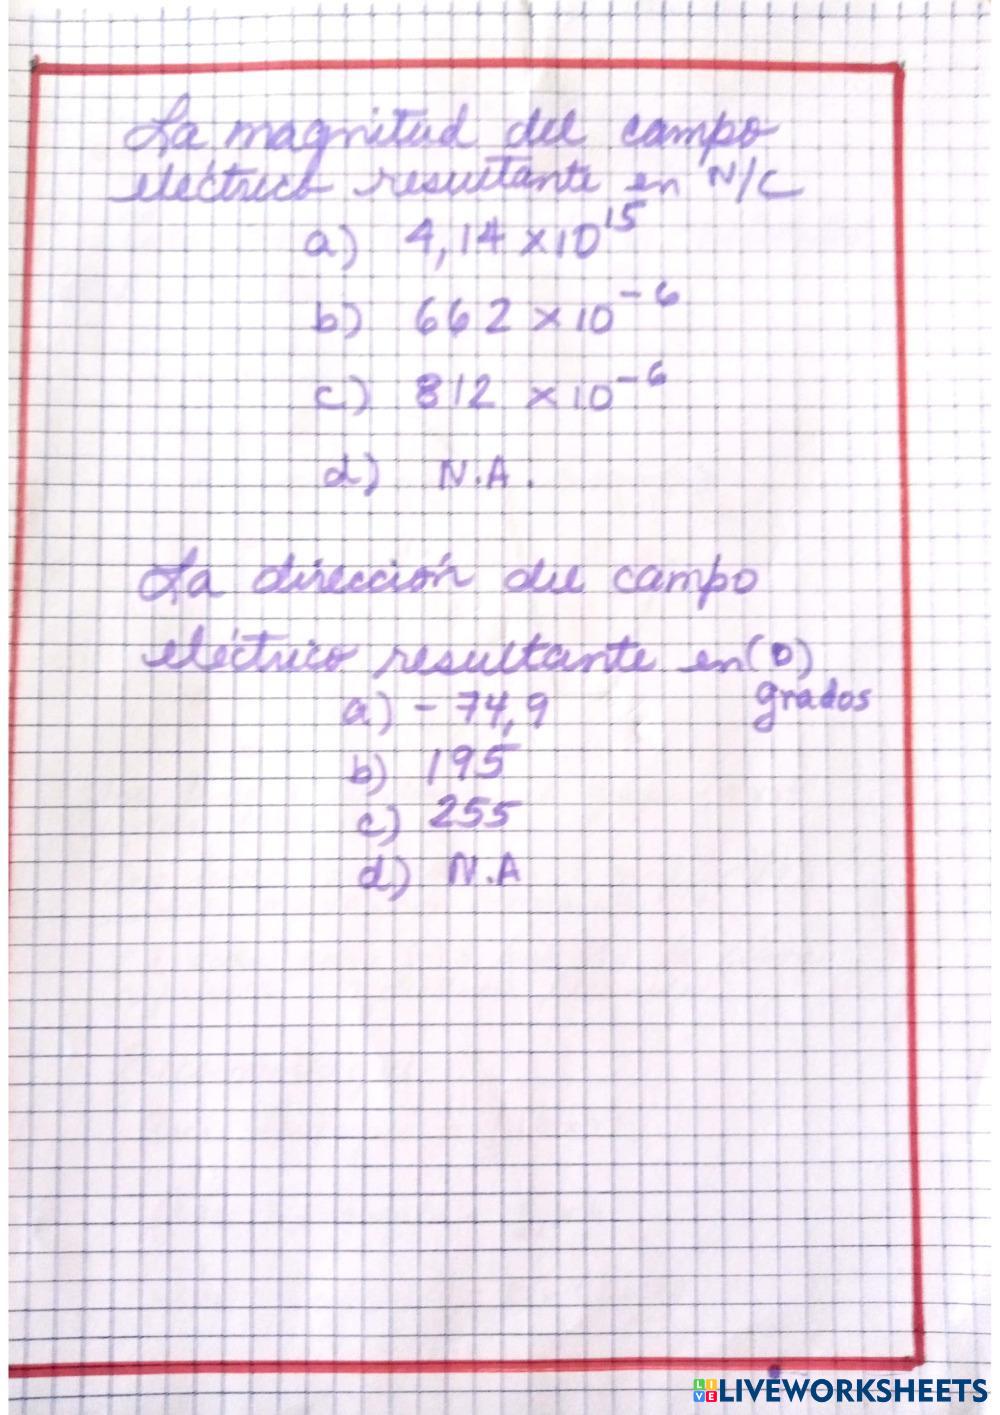 La magnitud del campo
eléctrico resultante en N/C
a) 4,14 x10^15
b) 662 x 10^-6
c) 812 x10^-6
d) N.A.
La dirección del campo
eléctrico resultante en(°)
grados
a) - 74,9
b) 195
c) 255
d) N.A
LIVEWORKSHEETS